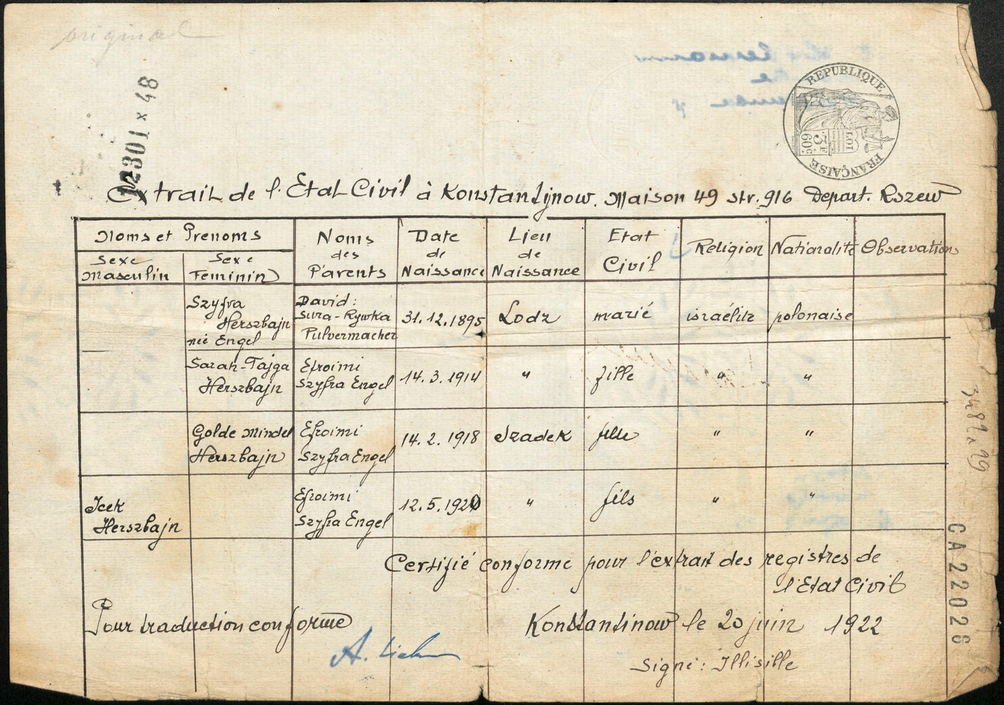 original
12301 x 48
RÉPUBLIQUE
FRANÇAISE
3F
60c
Extrait de l'Etat Civil à Konstantijnow. Maison 49 str. 916 Depart. Rszew
Noms et Prenoms
Sexe Masculin
Sexe Feminin
Noms des Parents
Date de Naissance
Lieu de Naissance
Etat Civil
Religion
Nationalité
Observations
Szyfra
Herszbajn
née Engel
David:
Sura-Rywka
Pulvermacher
31.12.1895
Lodz
marié
israélite
polonaise
Sarah-Fajga
Herszbajn
Efroimi
Szyfra Engel
14.3.1914
"
fille
"
"
Golde Mindel
Herszbajn
Efroimi
Szyfra Engel
14.2.1918
Szadek
fille
"
"
Icek
Herszbajn
Efroimi
Szyfra Engel
12.5.1920
"
fils
"
"
Certifié conforme pour l'extrait des registres de
l'Etat Civil
Pour traduction conforme
Konstantinow le 20 juin 1922
Signé: Illisille
3489 x 29
CA22026